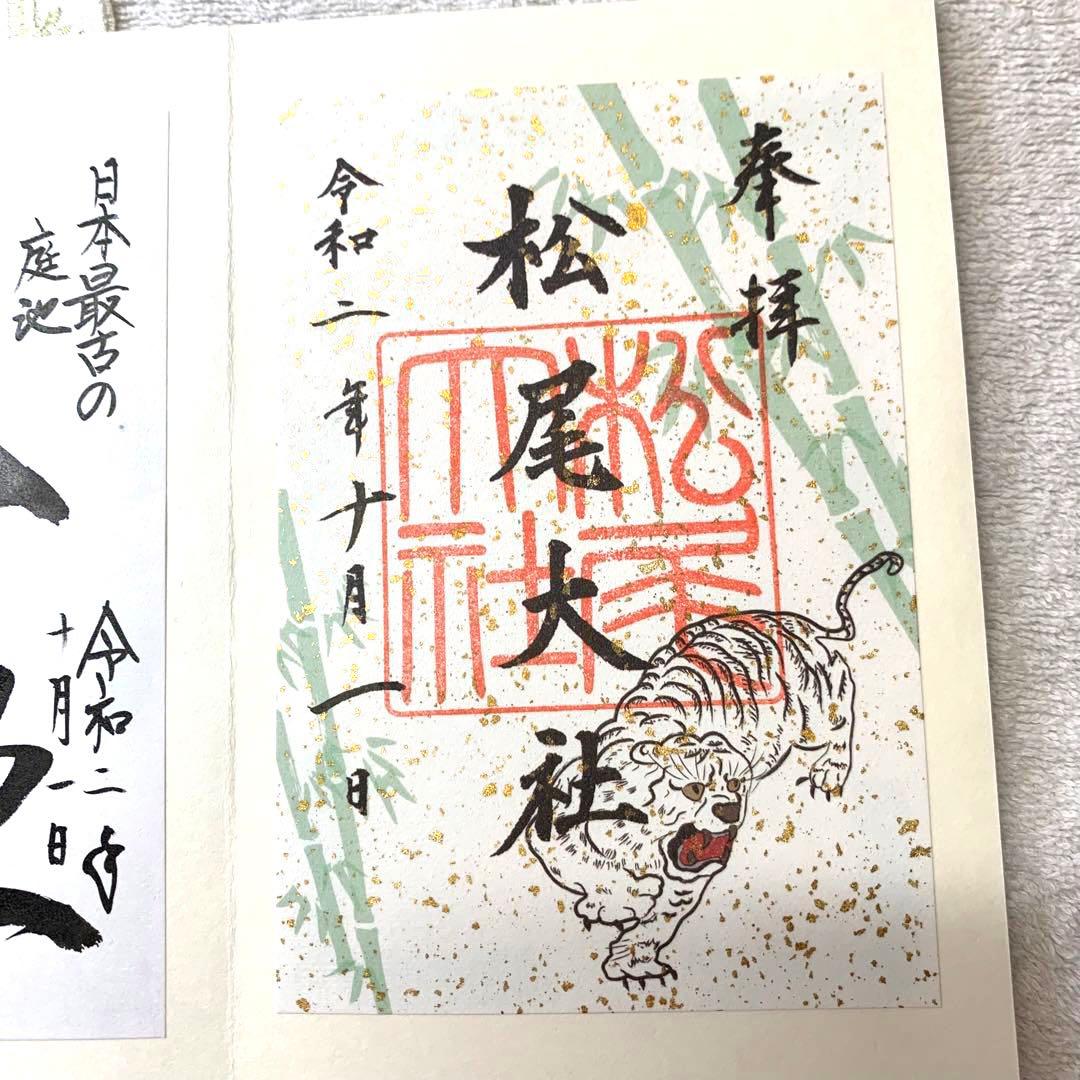 奉拝
松尾大社
松尾大社
令和二年十月一日
日本最古の
庭池
令和二年
十月一日